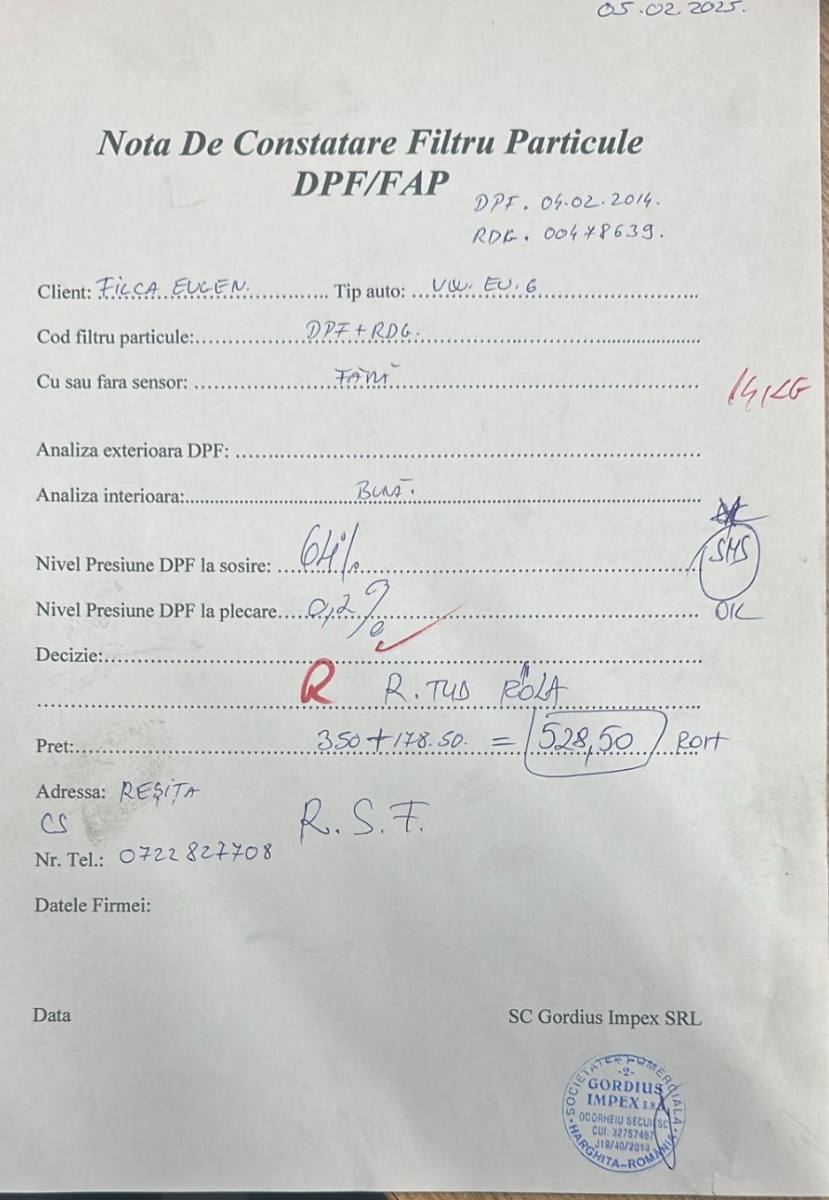 05.02.2025.
Nota De Constatare Filtru Particule
DPF/FAP
DPF. 04.02.2014.
RDG. 00478639.
Client: FILCA EUGEN. Tip auto: VW. EU. 6
Cod filtru particule: DPF + RDG.
Cu sau fara sensor: FĂRĂ
14 KG
Analiza exterioara DPF:
Analiza interioara: BUNĂ.
Nivel Presiune DPF la sosire: 64%
SMS
Nivel Presiune DPF la plecare 0,2%
OK
Decizie:
R R. TUD RÓLA
Pret: 350 + 178.50. = 528,50 RON
Adressa: REȘIȚA
CS
R. S. F.
Nr. Tel.: 0722 827708
Datele Firmei:
Data SC Gordius Impex SRL
SOCIETATEA COMERCIALĂ
-2-
GORDIUS
IMPEX S.R.L.
ODORHEIU SECUIESC
CUI: 32757467
J19/40/2013
HARGHITA-ROMÂNIA